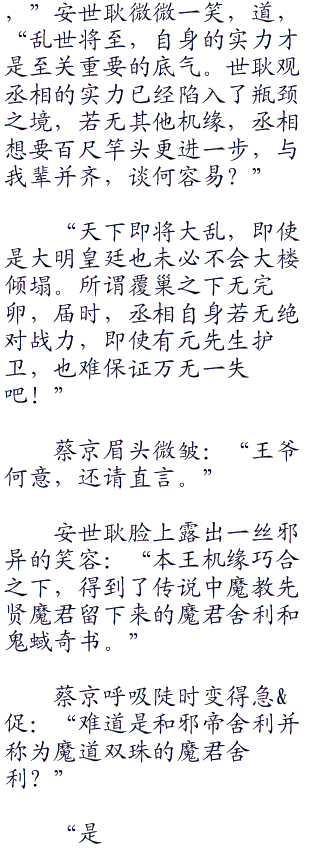 ，”安世耿微微一笑，道，
“乱世将至，自身的实力才
是至关重要的底气。世耿观
丞相的实力已经陷入了瓶颈
之境，若无其他机缘，丞相
想要百尺竿头更进一步，与
我辈并齐，谈何容易？”
“天下即将大乱，即使
是大明皇廷也未必不会大楼
倾塌。所谓覆巢之下无完
卵，届时，丞相自身若无绝
对战力，即使有元先生护
卫，也难保证万无一失
吧！”
蔡京眉头微皱：“王爷
何意，还请直言。”
安世耿脸上露出一丝邪
异的笑容：“本王机缘巧合
之下，得到了传说中魔教先
贤魔君留下来的魔君舍利和
鬼蜮奇书。”
蔡京呼吸陡时变得急&
促：“难道是和邪帝舍利并
称为魔道双珠的魔君舍
利？”
“是